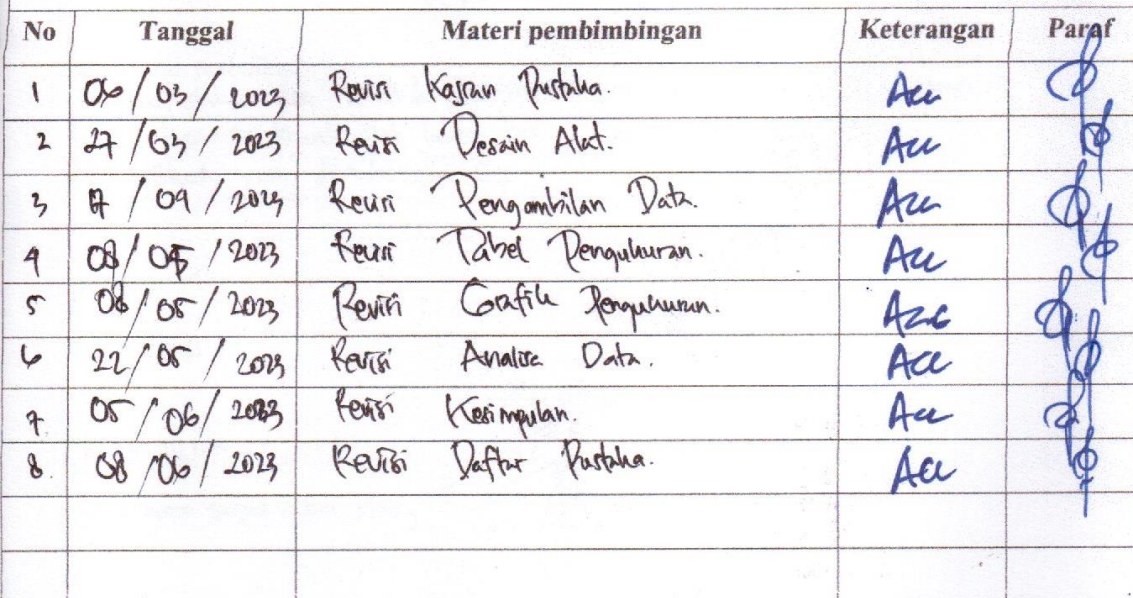 No Tanggal Materi pembimbingan Keterangan Paraf
1 06/03/2023 Revisi Kajian Pustaka. Acc
2 27/03/2023 Revisi Desain Alat. Acc
3 /04/2023 Revisi Pengambilan Data. Acc
4 08/05/2023 Revisi Tabel Pengukuran. Acc
5 08/05/2023 Revisi Grafik Pengukuran. Acc
6 22/05/2023 Revisi Analisa Data. Acc
7 05/06/2023 Revisi Kesimpulan. Acc
8. 08/06/2023 Revisi Daftar Pustaka. Acc